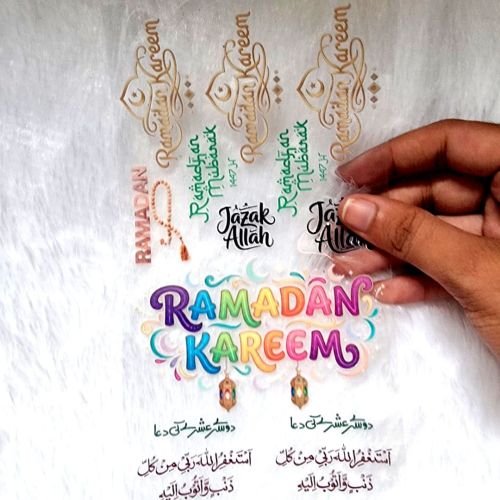 Ramadan Kareem
Ramadan Kareem
Ramadan Kareem
Ramadhan
Mubarak
1447 H
Ramadhan
Mubarak
1447 H
RAMADAN
Jazak
Allah
Jazak
Allah
RAMADAN
KAREEM
دوسرے عشرے کی دعا
دوسرے عشرے کی دعا
اَسْتَغْفِرُ اللهَ رَبِّي مِنْ كُلِّ
ذَنْبٍ وَّاَتُوْبُ اِلَيْهِ
اَسْتَغْفِرُ اللهَ رَبِّي مِنْ كُلِّ
ذَنْبٍ وَّاَتُوْبُ اِلَيْهِ